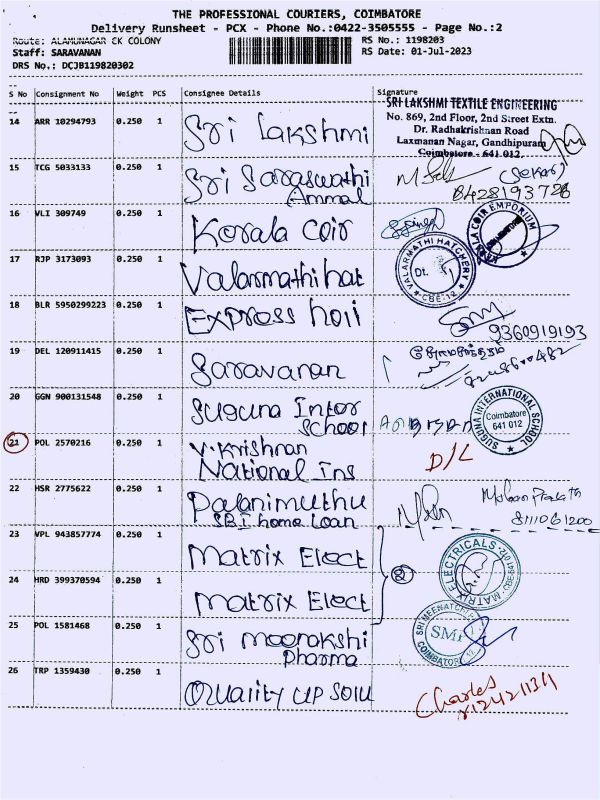 THE PROFESSIONAL COURIERS, COIMBATORE
Delivery Runsheet - PCX - Phone No.:0422-3505555 - Page No.:2
Route: ALAMUNAGAR CK COLONY
RS No.: 1198203
Staff: SARAVANAN
RS Date: 01-Jul-2023
DRS No.: DCJB119820302
S No Consignment No Weight PCS Consignee Details Signature
14 ARR 10294793 0.250 1 Sri Lakshmi
SRI LAKSHMI TEXTILE ENGINEERING
No. 869, 2nd Floor, 2nd Street Extn.
Dr. Radhakrishnan Road
Laxmanan Nagar, Gandhipuram
Coimbatore - 641 012.
15 TCG 5033133 0.250 1 Sri Saraswathi
Ammal
(Sekar)
8428193728
16 VLI 309749 0.250 1 Kerala Coir
KERALA COIR EMPORIUM
17 RJP 3173093 0.250 1 Valarmathi hat
VALARMATHI HATCHERY
Dt.
CBE-12
18 BLR 5950299223 0.250 1 Express
9360919193
19 DEL 120911415 0.250 1 Saravanan
20 GGN 900131548 0.250 1 Suguna Inter
School
SUGUNA INTERNATIONAL SCHOOL
Coimbatore
641 012
21 POL 2570216 0.250 1 V. Krishnan
National Ins
D/L
22 HSR 2775622 0.250 1 Palanimuthu
SBI home Loan
8111061200
23 VPL 943857774 0.250 1 Matrix Elect
24 HRD 399370594 0.250 1 Matrix Elect
2
MATRIX ELECTRICALS
25 POL 1581468 0.250 1 Sri Meenakshi
Pharma
SRI MEENATCHI
SMP
COIMBATORE-12
26 TRP 1359430 0.250 1 Quality up
Charles